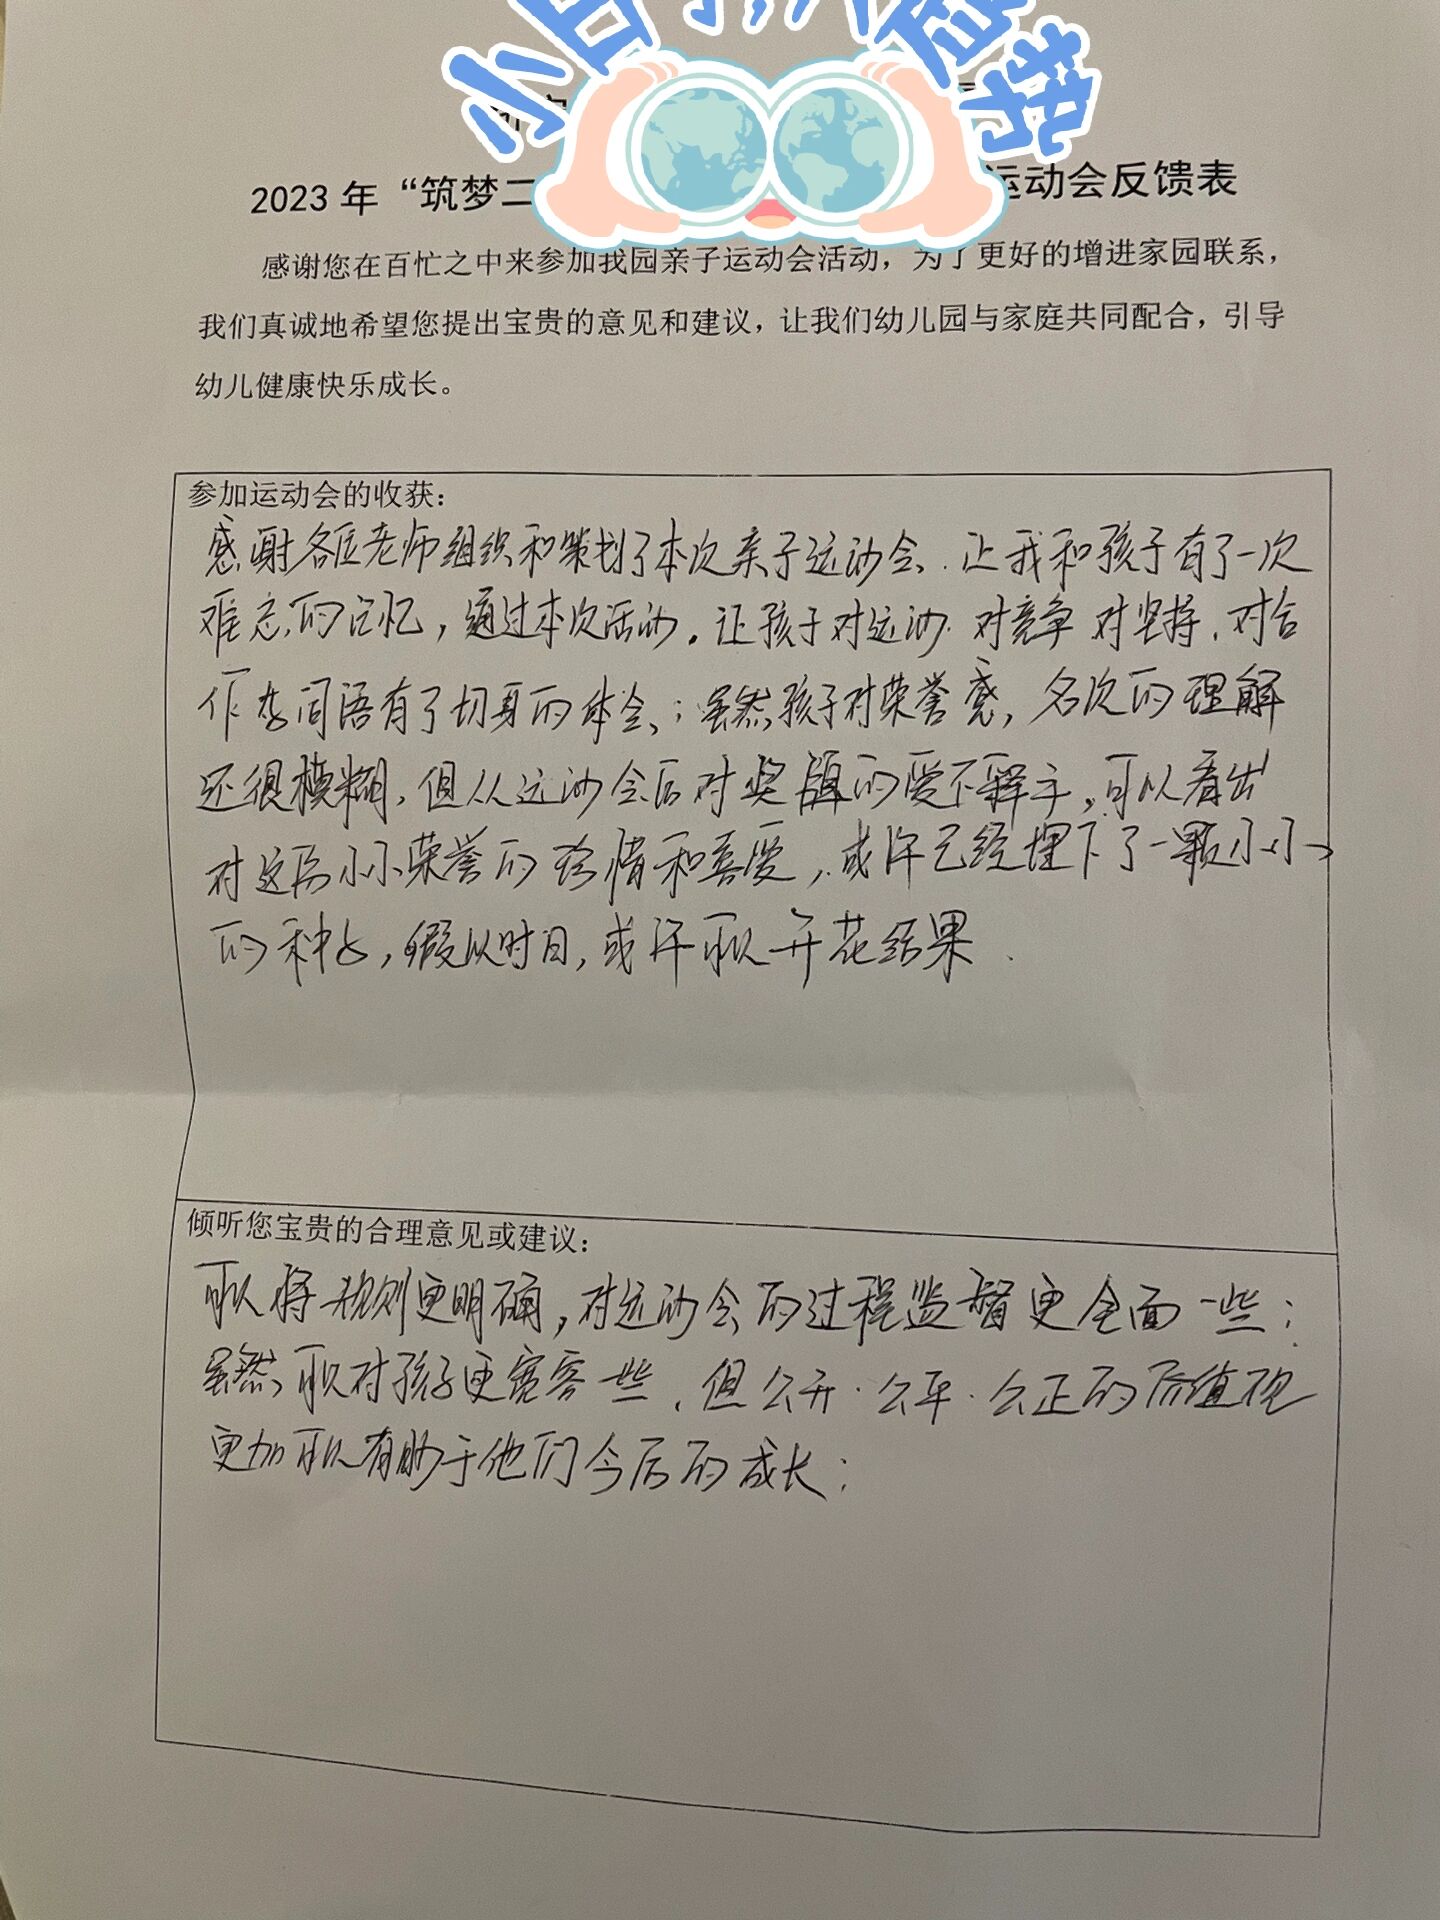 2023 年 “筑梦二 运动会反馈表
感谢您在百忙之中来参加我园亲子运动会活动，为了更好的增进家园联系，
我们真诚地希望您提出宝贵的意见和建议，让我们幼儿园与家庭共同配合，引导
幼儿健康快乐成长。
参加运动会的收获：
感谢各位老师组织和策划了本次亲子运动会.让我和孩子有了一次
难忘的记忆，通过本次活动.让孩子对运动.对竞争 对坚持.对合
作等词语有了切身的体会；虽然孩子对荣誉感，名次的理解
还很模糊，但从运动会后对奖牌的爱不释手，可以看出
对这份小小荣誉的珍惜和喜爱，或许已经埋下了一颗小小
的种子，假以时日，或许可以开花结果.
倾听您宝贵的合理意见或建议：
可以将规则更明确，对运动会的过程监督更全面一些；
虽然可以对孩子更宽容一些.但公开.公平.公正的价值观
更加可以有助于他们今后的成长；